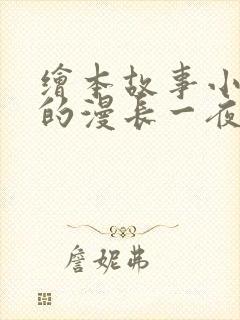 繪本故事小
的漫長一夜
詹妮弗